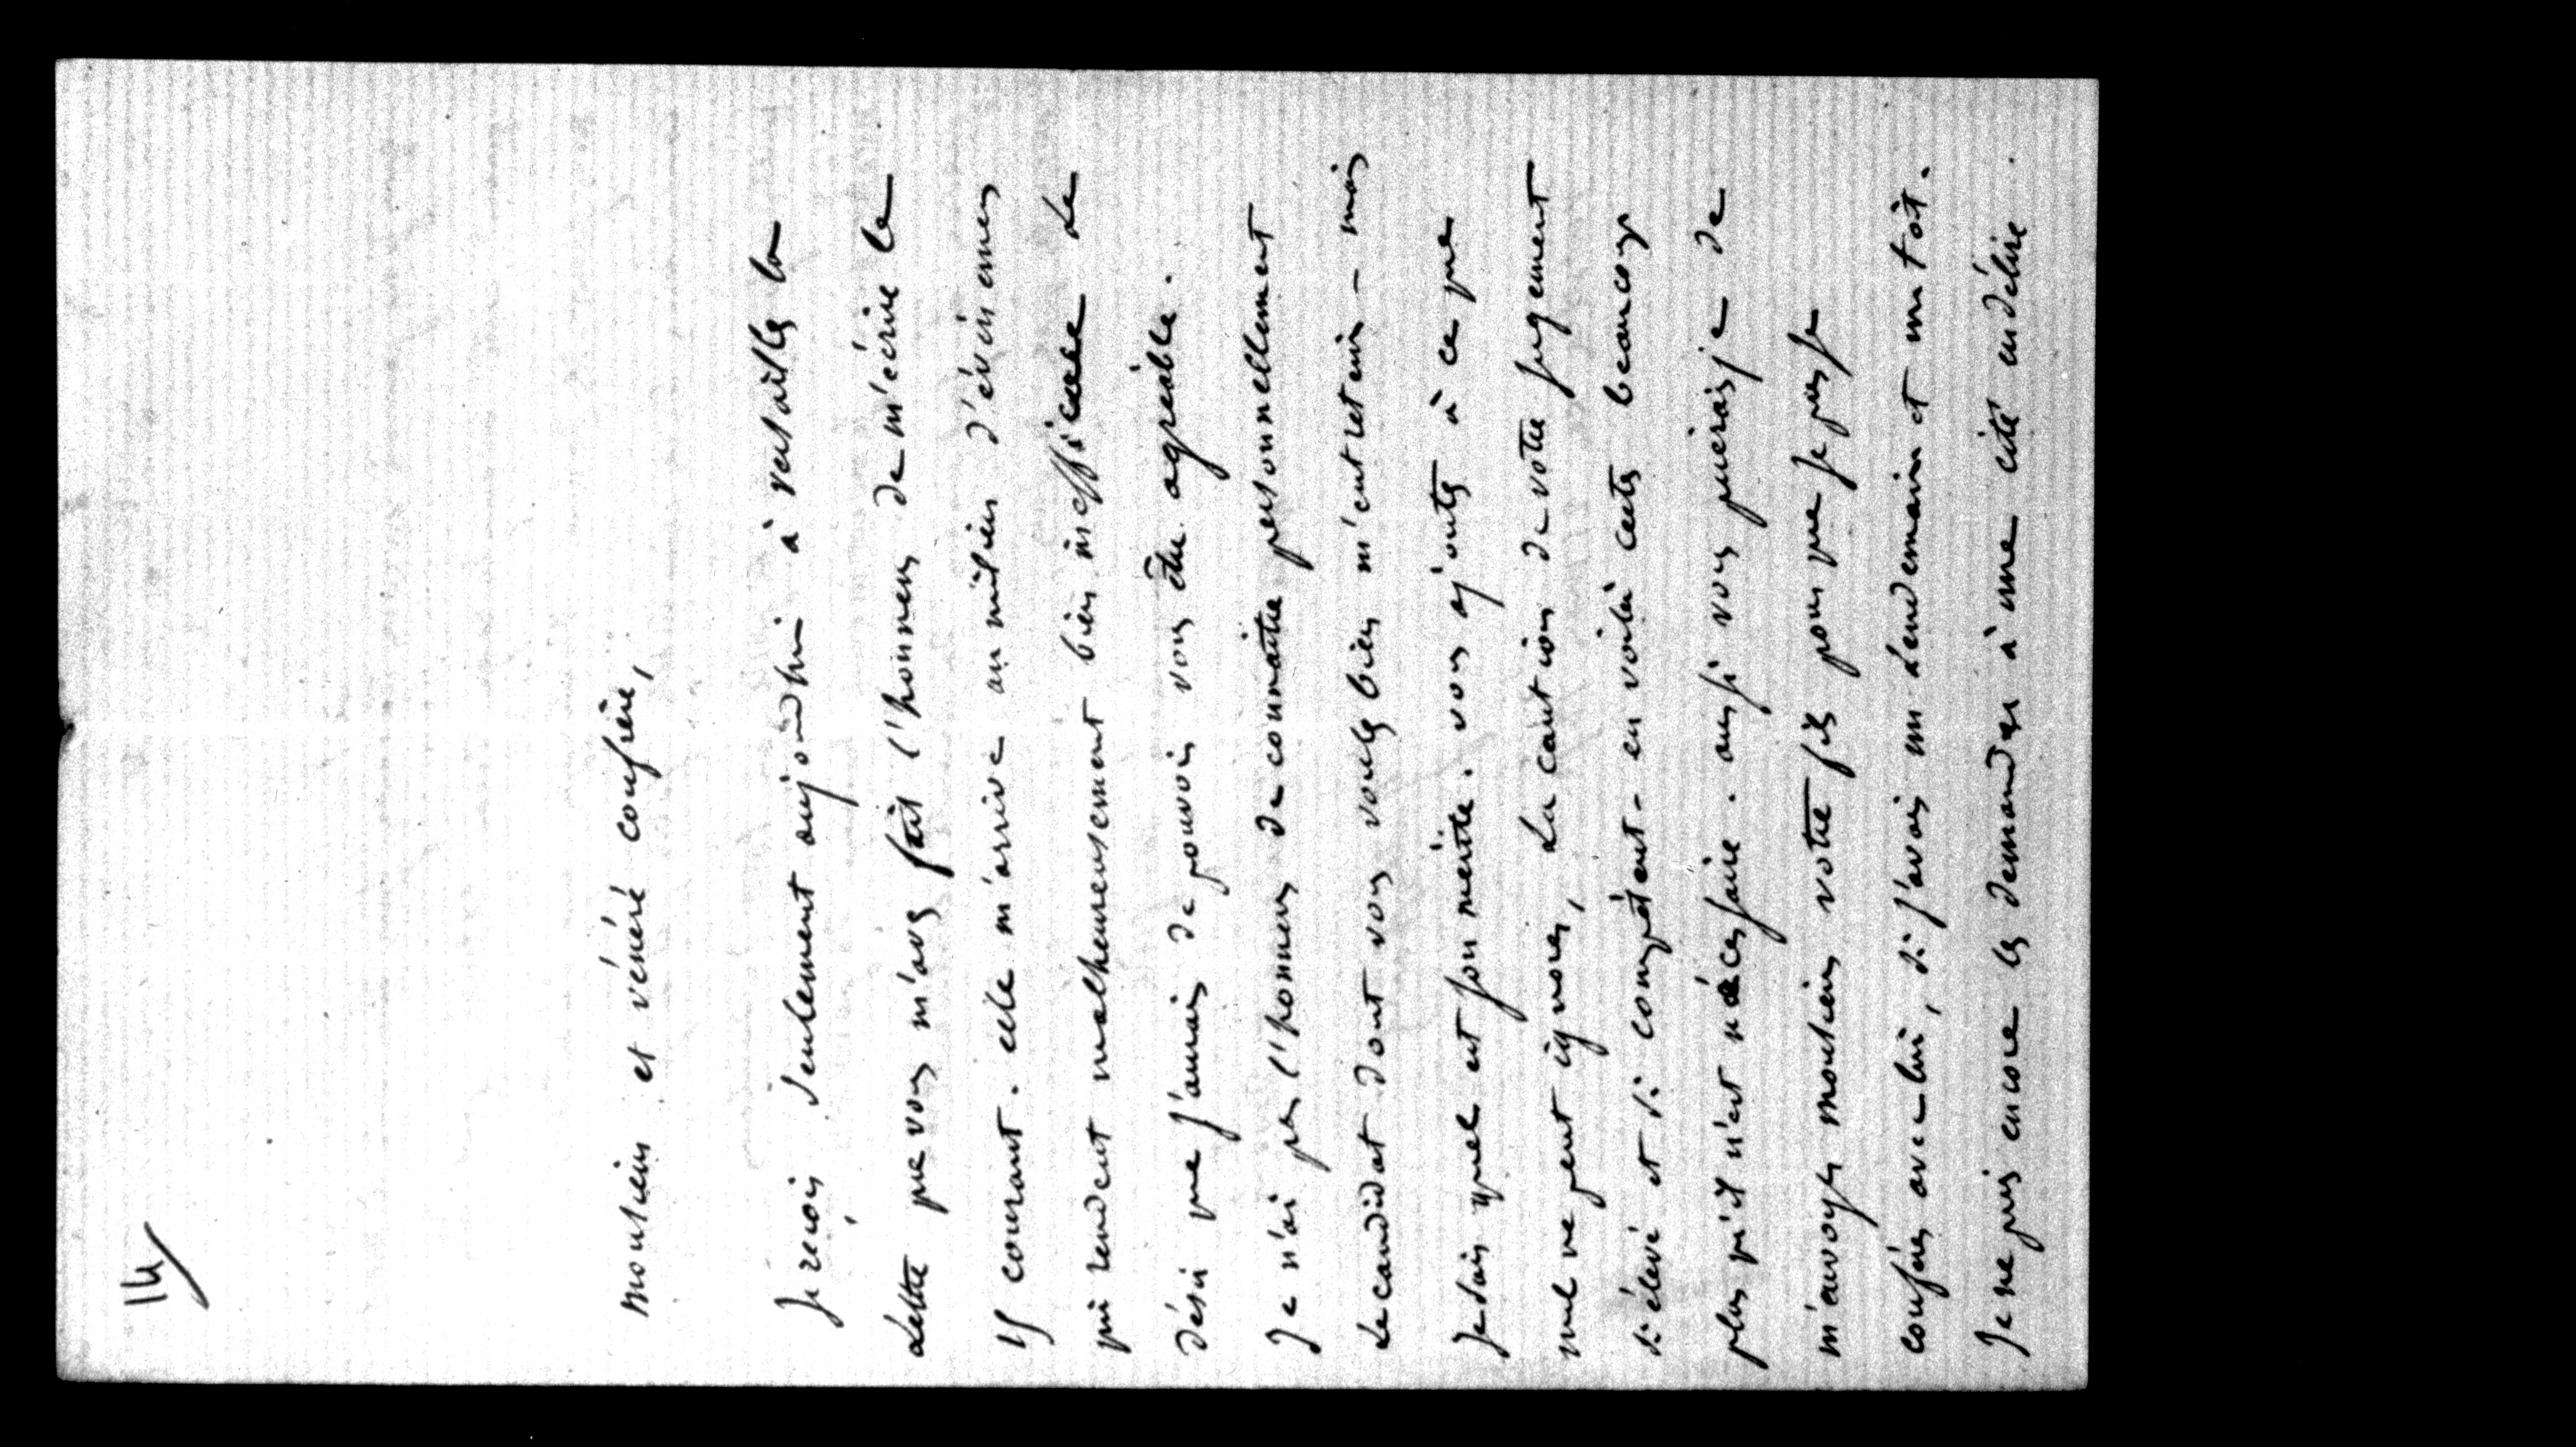 14/
Monsieur et vénéré confrère,
Je reçois seulement aujourd'hui à versailles la
Lettre que vous m'avez fait l'honneur de m'écrire le
15 courant. elle m'arrive au milieu d'évènemens
qui rendent malheureusement bien inefficace Le
désir que j'aurais de pouvoir vous être agréable.
Je n'ai pas l'honneur de connaître personnellement
Le candidat dont vous voulez bien m'entretenir - mais
Je sais quel est son mérite. vous ajoutez à ce que
nul ne peut ignorer, La caution de votre jugement
si élevé et si compétent - en voilà certes beaucoup
plus qu'il n'est nécessaire. aussi vous prierais je de
m'envoyer monsieur votre fils pour que je puisse
conférer avec lui, si j'avais un Lendemain et un toît.
Je ne puis encore les demander à une cité en délire.